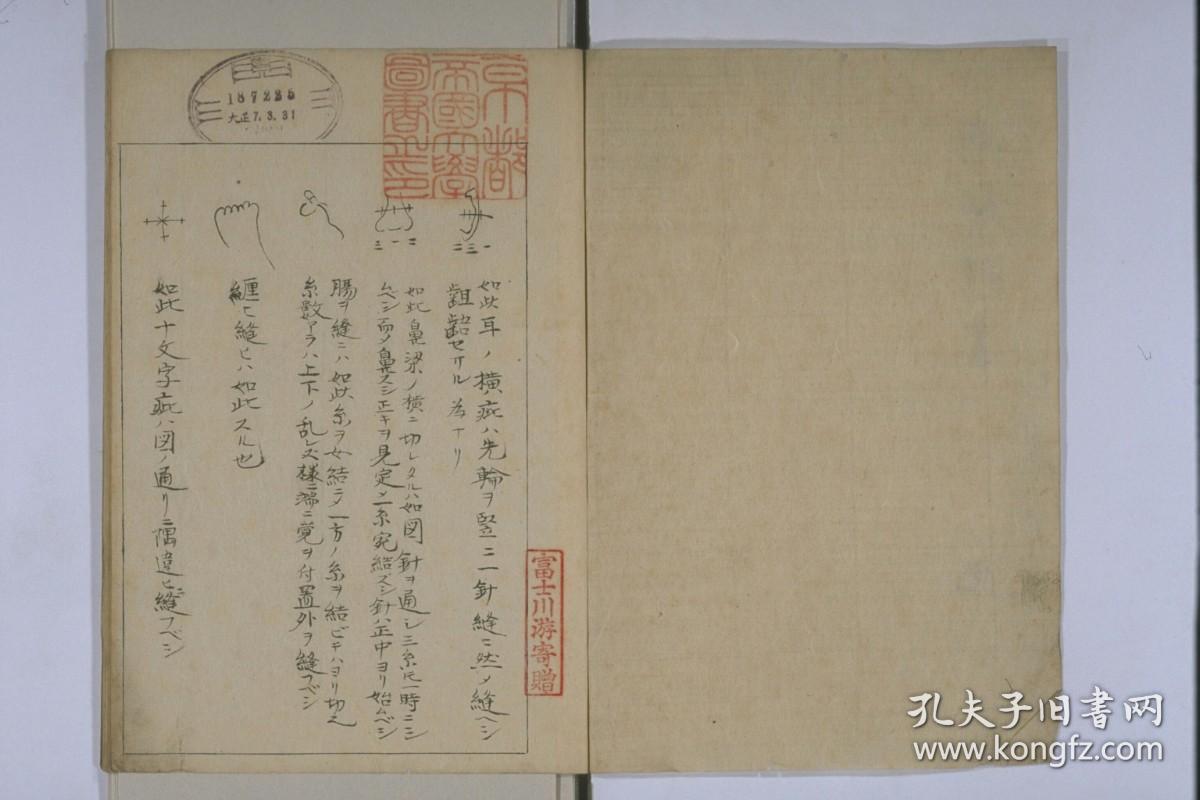 187225
大正7.3.31
京都
帝國大學
圖書之印
二三一
三一二
如此耳ノ横疵ハ先輪ヲ竪ニ一針縫ニ然メ縫ヘシ
齟齬セサル為ナリ
如此鼻梁ノ横ニ切レタルハ如図針ヲ通シ三糸氏一時ニシ
ムベシ而メ鼻スシ正キヲ見定メ一糸宛結ズシ針ハ正中ヨリ始ムベシ
腸ヲ縫ニハ如此糸ヲ女結ニメ一方ノ糸ヲ結ビキハヨリ切之
糸数アラハ上下ノ乱レズ様ニ端ニ覚ヲ付置外ヲ縫フベシ
纏ヒ縫ヒハ如此スル也
如此十文字疵ハ図ノ通リニ隅違ヒニ縫フベシ
富士川游寄贈
孔夫子旧书网
www.kongfz.com